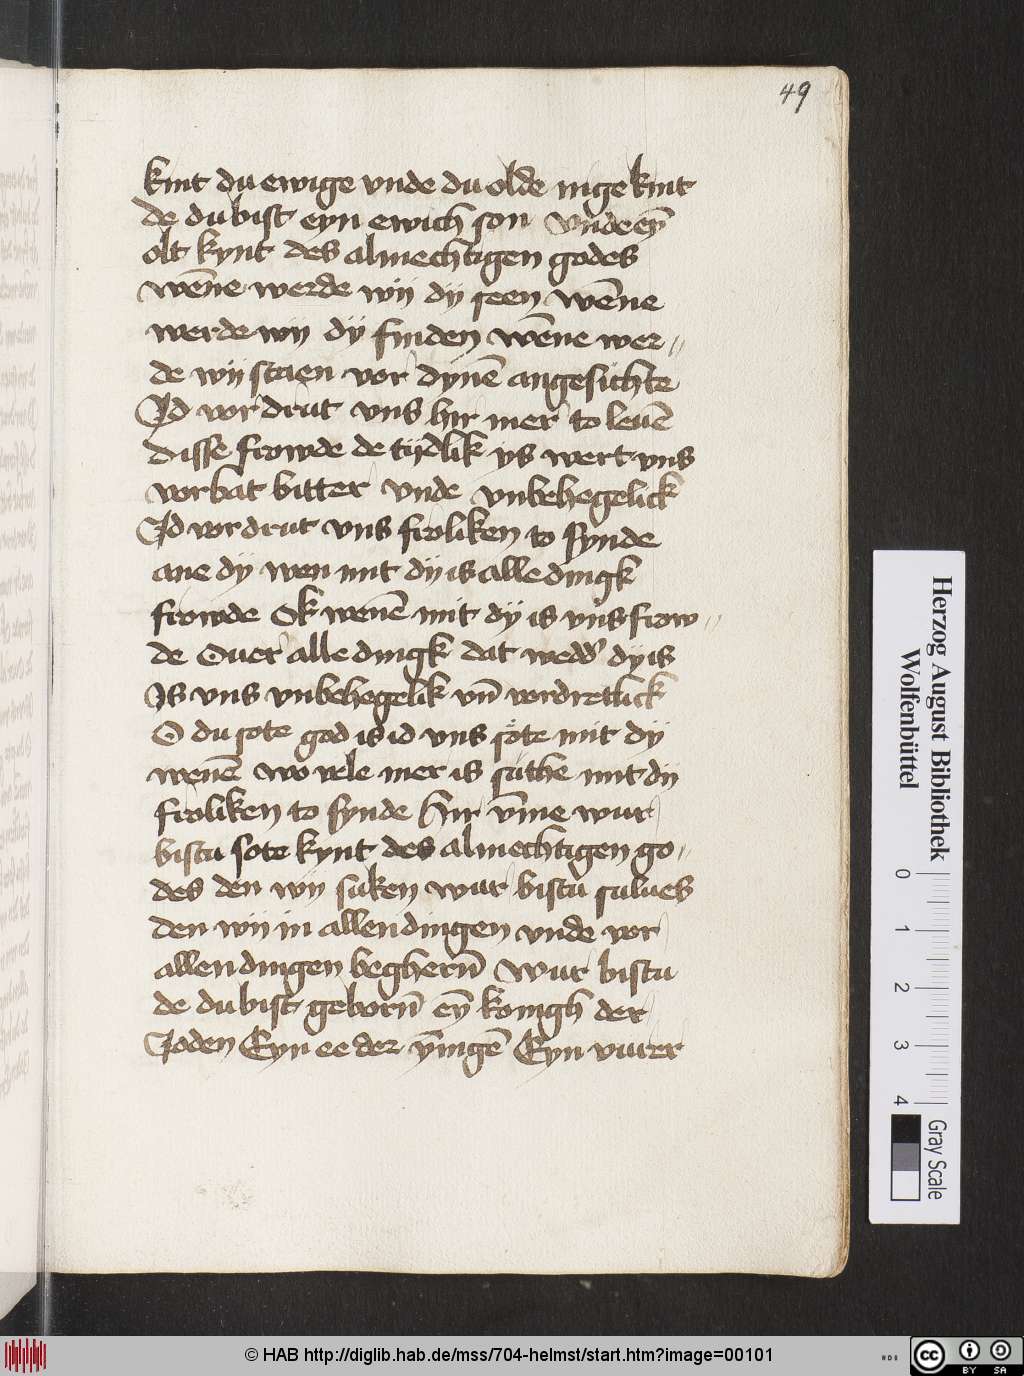 49
kint du ewige vnde du olde nige kint
de du bist eyn ewich son vnde eȳ
olt kynt des almechtigen godes
wēne werde wij dij seen wēne
werde wij dij finden wēne wer〃
de wij staen vor dynē angesichte
Id vordrut vns hir mer to leuē
disse frowde de tijdlik ys wert vns
vorbat bitter vnde vnbehegelick
Id vordrut vns froliken to synde
ane dij wen mit dij is alle dingk
frowde Ok wenē mit dij is vns frow〃
de Ouer alle dingk dat wedd' dij is
Is vns vnbehegelik vn̄ vordretlick
O du sote god is id vns söte mit dij
wenē wo vele mer is suthe mit dij
froliken to synde Hir vm̄e wur
bistu sote kynt des almechtigen go〃
des den wij suken wur bistu sulues
den wij in allen dingen vnde vor
allen dingen beghern̄ Wur bistu
de du bist geborn̄ eȳ konigh der
Joden Eyn ee der ȳngē Eyn viurer
Herzog August Bibliothek
Wolfenbüttel
0 1 2 3 4
Gray Scale
© HAB http://diglib.hab.de/mss/704-helmst/start.htm?image=00101
HAB
cc BY SA